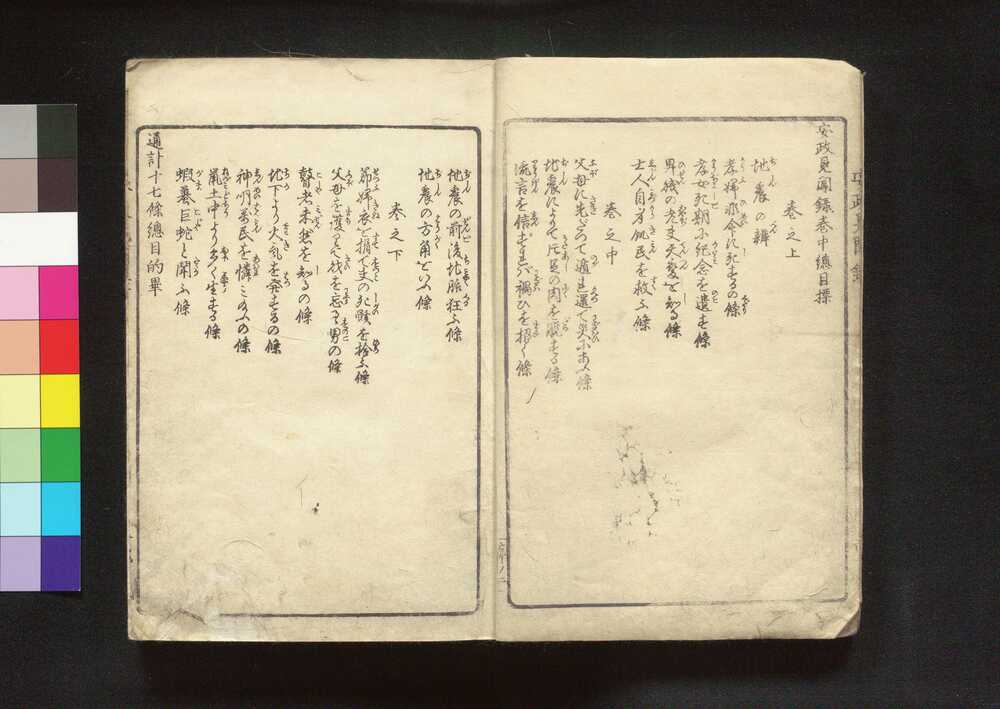 安政見聞録巻中總目標
巻之上
地震の辨
孝婦非命に死するの條
孝女死期に紀念を遺す條
卑賤の老夫天変を知る條
士人自身飢民を救ふ條
巻之中
父母に先だつて逃れ還て災にあふ條
地震によつて厄至の肉を脱する條
流言を信ずれバ禍ひを招く條
地震の前後地脈狂ふ條
地震の方角をいふ條
巻之下
節婦衣を捐て夫の死骸を捡ふ條
父母を護つて伐を忘るゝ男の條
瞽者未然を知るの條
地下より火気を発するの條
神明萬民を憐ミ給ふの條
鼠土中より多く生ずる條
蝦蟇巨蛇と闘ふ條
通計十七條總目的畢